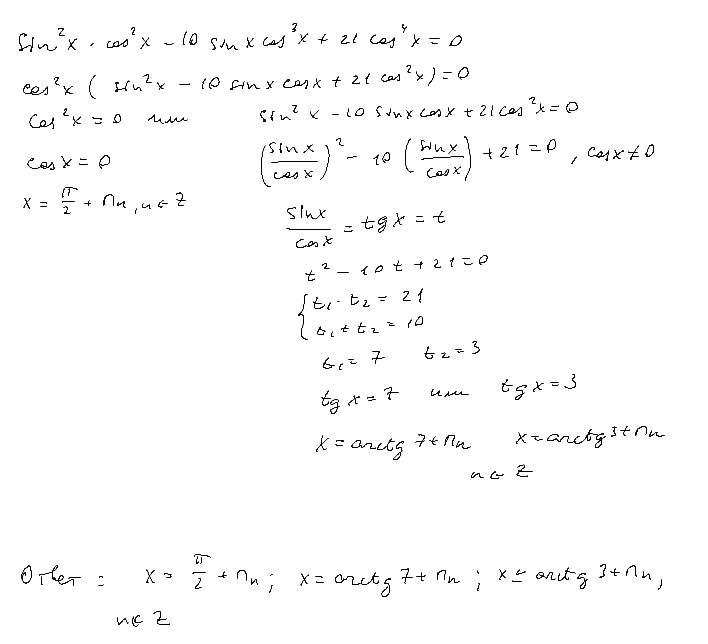 sin²x · cos²x − 10 sin x cos³x + 21 cos⁴x = 0
cos²x ( sin²x − 10 sin x cos x + 21 cos²x) = 0
cos²x = 0 или sin²x − 10 sin x cos x + 21 cos²x = 0
cos x = 0 (sin x / cos x)² − 10 (sin x / cos x) + 21 = 0 , cos x ≠ 0
x = π/2 + πn , n ∈ Z
sin x / cos x = tg x = t
t² − 10 t + 21 = 0
{ t₁ · t₂ = 21
t₁ + t₂ = 10
t₁ = 7 t₂ = 3
tg x = 7 или tg x = 3
x = arctg 7 + πn x = arctg 3 + πn
n ∈ Z
Ответ : x = π/2 + πn ; x = arctg 7 + πn ; x = arctg 3 + πn ,
n ∈ Z